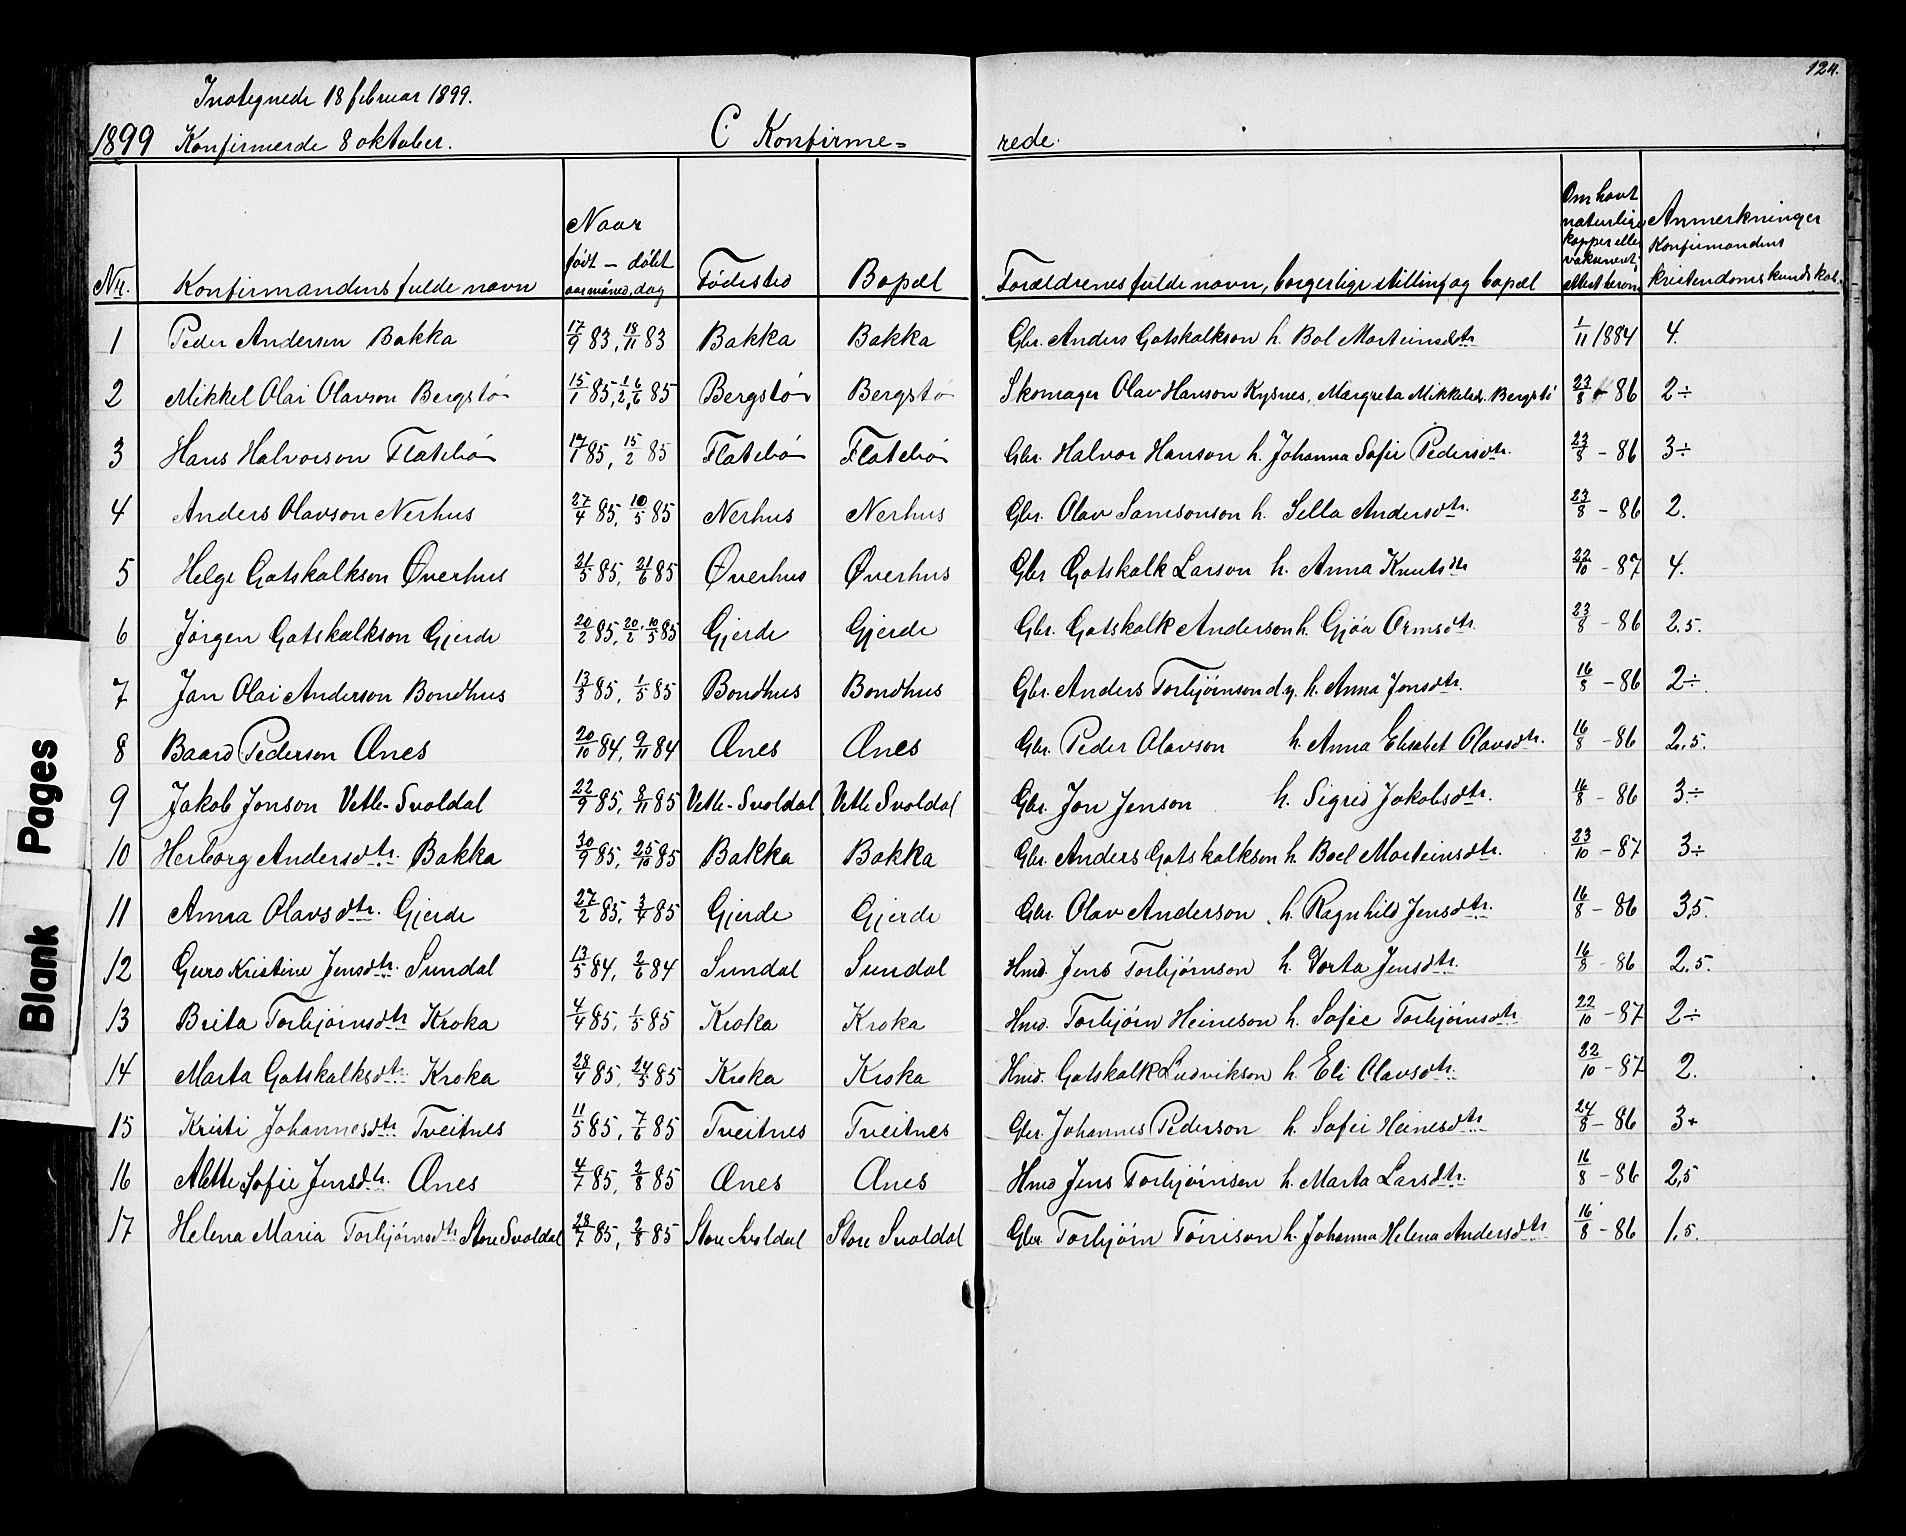 124.
Inotegnede 18 februar 1899.
1899 Konfirmerde 8 oktober. C Konfirme= rede.
Nr. Konfirmandens fulde navn Naar født — døbt aar maaned, dag Fødested Bopæl Forældrenes fulde navn, borgerlige stilling og bopæl Om havt naturlige kopper eller vakcineret, attest herom Anmerkninger Konfirmandens kristendomskundskab.
1 Peder Anderson Bakka 17/9 83, 18/11 83 Bakka Bakka Gbr. Anders Gotskalkson h. Bol Morteinsdtr 1/11 1884 4.
2 Mikkel Olai Olavson Bergstø 15/1 85, 1/2, 6/6 85 Bergstø Bergstø Skomager Olav Hanson Kysnes, Margreta Mikkelsd. Bergstø 23/8 - 86 2÷
3 Hans Halvorson Flatebø 17/1 85, 15/2 85 Flatebø Flatebø Gbr. Halvor Hanson h. Johanna Sofie Pedersdtr. 23/8 - 86 3÷
4 Anders Olavson Nerhus 27/4 85, 10/5 85 Nerhus Nerhus Gbr. Olav Samsonson h. Sella Andersdtr. 23/8 - 86 2.
5 Helge Gotskalkson Øverhus 21/5 85, 21/6 85 Øverhus Øverhus Gbr Gotskalk Larson h. Anna Knutsdtr 22/10 - 87 4.
6 Jørgen Gotskalkson Gjerde 20/2 85, 20/2, 10/5 85 Gjerde Gjerde Gbr. Gotskalk Anderson h. Gjøa Ormsdtr. 23/8 - 86 2.5.
7 Jan Olai Anderson Bondhus 13/3 85, 1/5 85 Bondhus Bondhus Gbr. Anders Torbjørnson d.y. h. Anna Jonsdtr. 16/8 - 86 2÷
8 Baard Pederson Ænes 20/10 84, 9/11 84 Ænes Ænes Gbr. Peder Olavson h. Anna Elisabet Olavsdtr. 16/8 - 86 2,5.
9 Jakob Jonson Vetle-Svoldal 22/9 85, 8/11 85 Vetle-Svoldal Vetle Svoldal Gbr. Jon Jenson h. Sigrid Jakobsdtr. 16/8 - 86 3÷
10 Herborg Andersdtr. Bakka 30/9 85, 25/10 85 Bakka Bakka Gbr. Anders Gotskalkson h. Boel Morteinsdtr. 23/10 - 87 3÷
11 Anna Olavsdtr. Gjerde 27/2 85, 3/4 85 Gjerde Gjerde Gbr. Olav Anderson h. Ragnhild Jensdtr. 16/8 - 86 3,5.
12 Guro Kristine Jensdtr. Sundal 13/5 84, 2/6 84 Sundal Sundal Hmd. Jens Torbjørnson h. Dorta Jensdtr. 16/8 - 86 2,5.
13 Brita Torbjørnsdtr Kroka 4/4 85, 1/5 85 Kroka Kroka Hmd. Torbjørn Heineson h. Sofie Torbjørnsdtr 22/10 - 87 2÷
14 Marta Gotskalksdtr. Kroka 28/4 85, 24/5 85 Kroka Kroka Hmd. Gotskalk Ludvikson h. Eli Olavsdtr. 22/10 - 87 2.
15 Kristi Johannesdtr Tveitnes 11/5 85, 7/6 85 Tveitnes Tveitnes Gbr. Johannes Pederson h. Sofie Heinesdtr 24/8 - 86 3+
16 Alette Sofie Jensdtr. Ænes 4/7 85, 2/8 85 Ænes Ænes Hmd Jens Torbjørnson h. Marta Larsdtr. 16/8 - 86 2,5
17 Helena Maria Torbjørnsdtr Store Svoldal 28/7 85, 2/8 85 Store Svoldal Store Svoldal Gbr Torbjørn Tørrison h. Johanna Helena Andersdtr 16/8 - 86 1,5.
Blank Pages